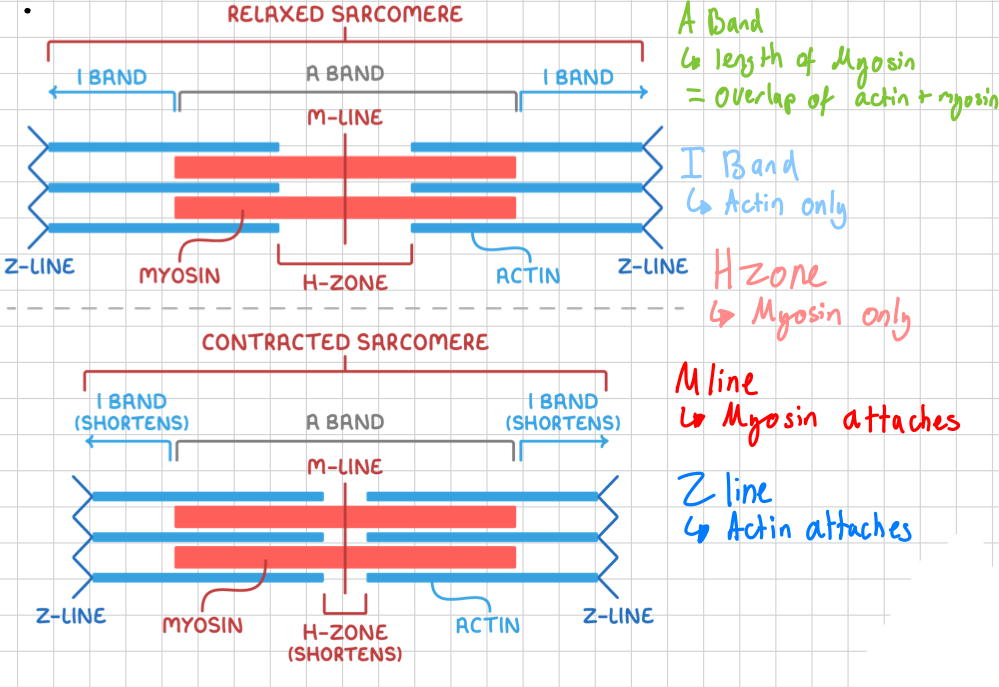 RELAXED SARCOMERE
I BAND
A BAND
I BAND
M-LINE
Z-LINE
MYOSIN
H-ZONE
ACTIN
Z-LINE
CONTRACTED SARCOMERE
I BAND
(SHORTENS)
A BAND
I BAND
(SHORTENS)
M-LINE
Z-LINE
MYOSIN
H-ZONE
(SHORTENS)
ACTIN
Z-LINE
A Band
↳ length of Myosin
= Overlap of actin + myosin
I Band
↳ Actin only
H zone
↳ Myosin only
M line
↳ Myosin attaches
Z line
↳ Actin attaches